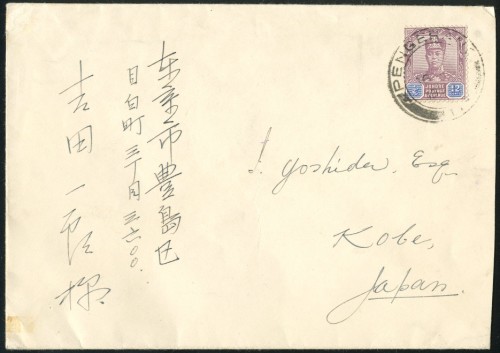 東京市豊島区
目白町三丁目三六〇〇
吉田一郎様
I. Yoshida, Esq.
Kobe,
Japan.
PENGER
JOHORE
POSTAGE
REVENUE
12